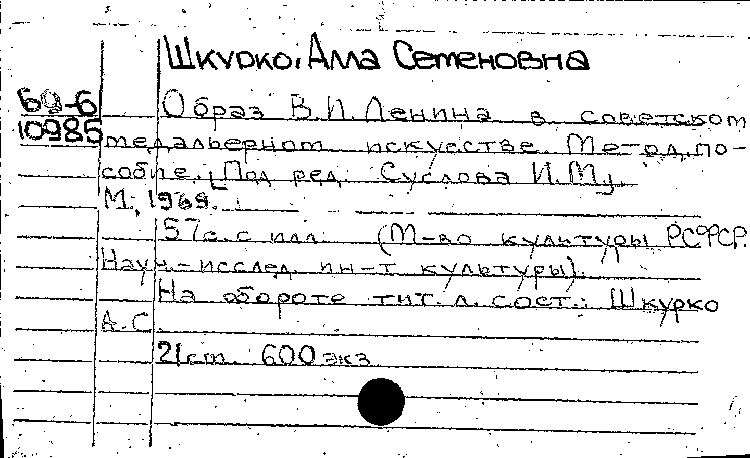 Шкурко, Алла Семеновна
69-6 Образ В.И. Ленина в советском
10985 медальерном искусстве. Метод. по-
собие. [Под ред. Суслова И.М.].
М., 1969.
57 с. с илл. (М-во культуры РСФСР.
Науч.-исслед. ин-т культуры).
На обороте тит. л. сост.: Шкурко
А.С.
21 см. 600 экз.